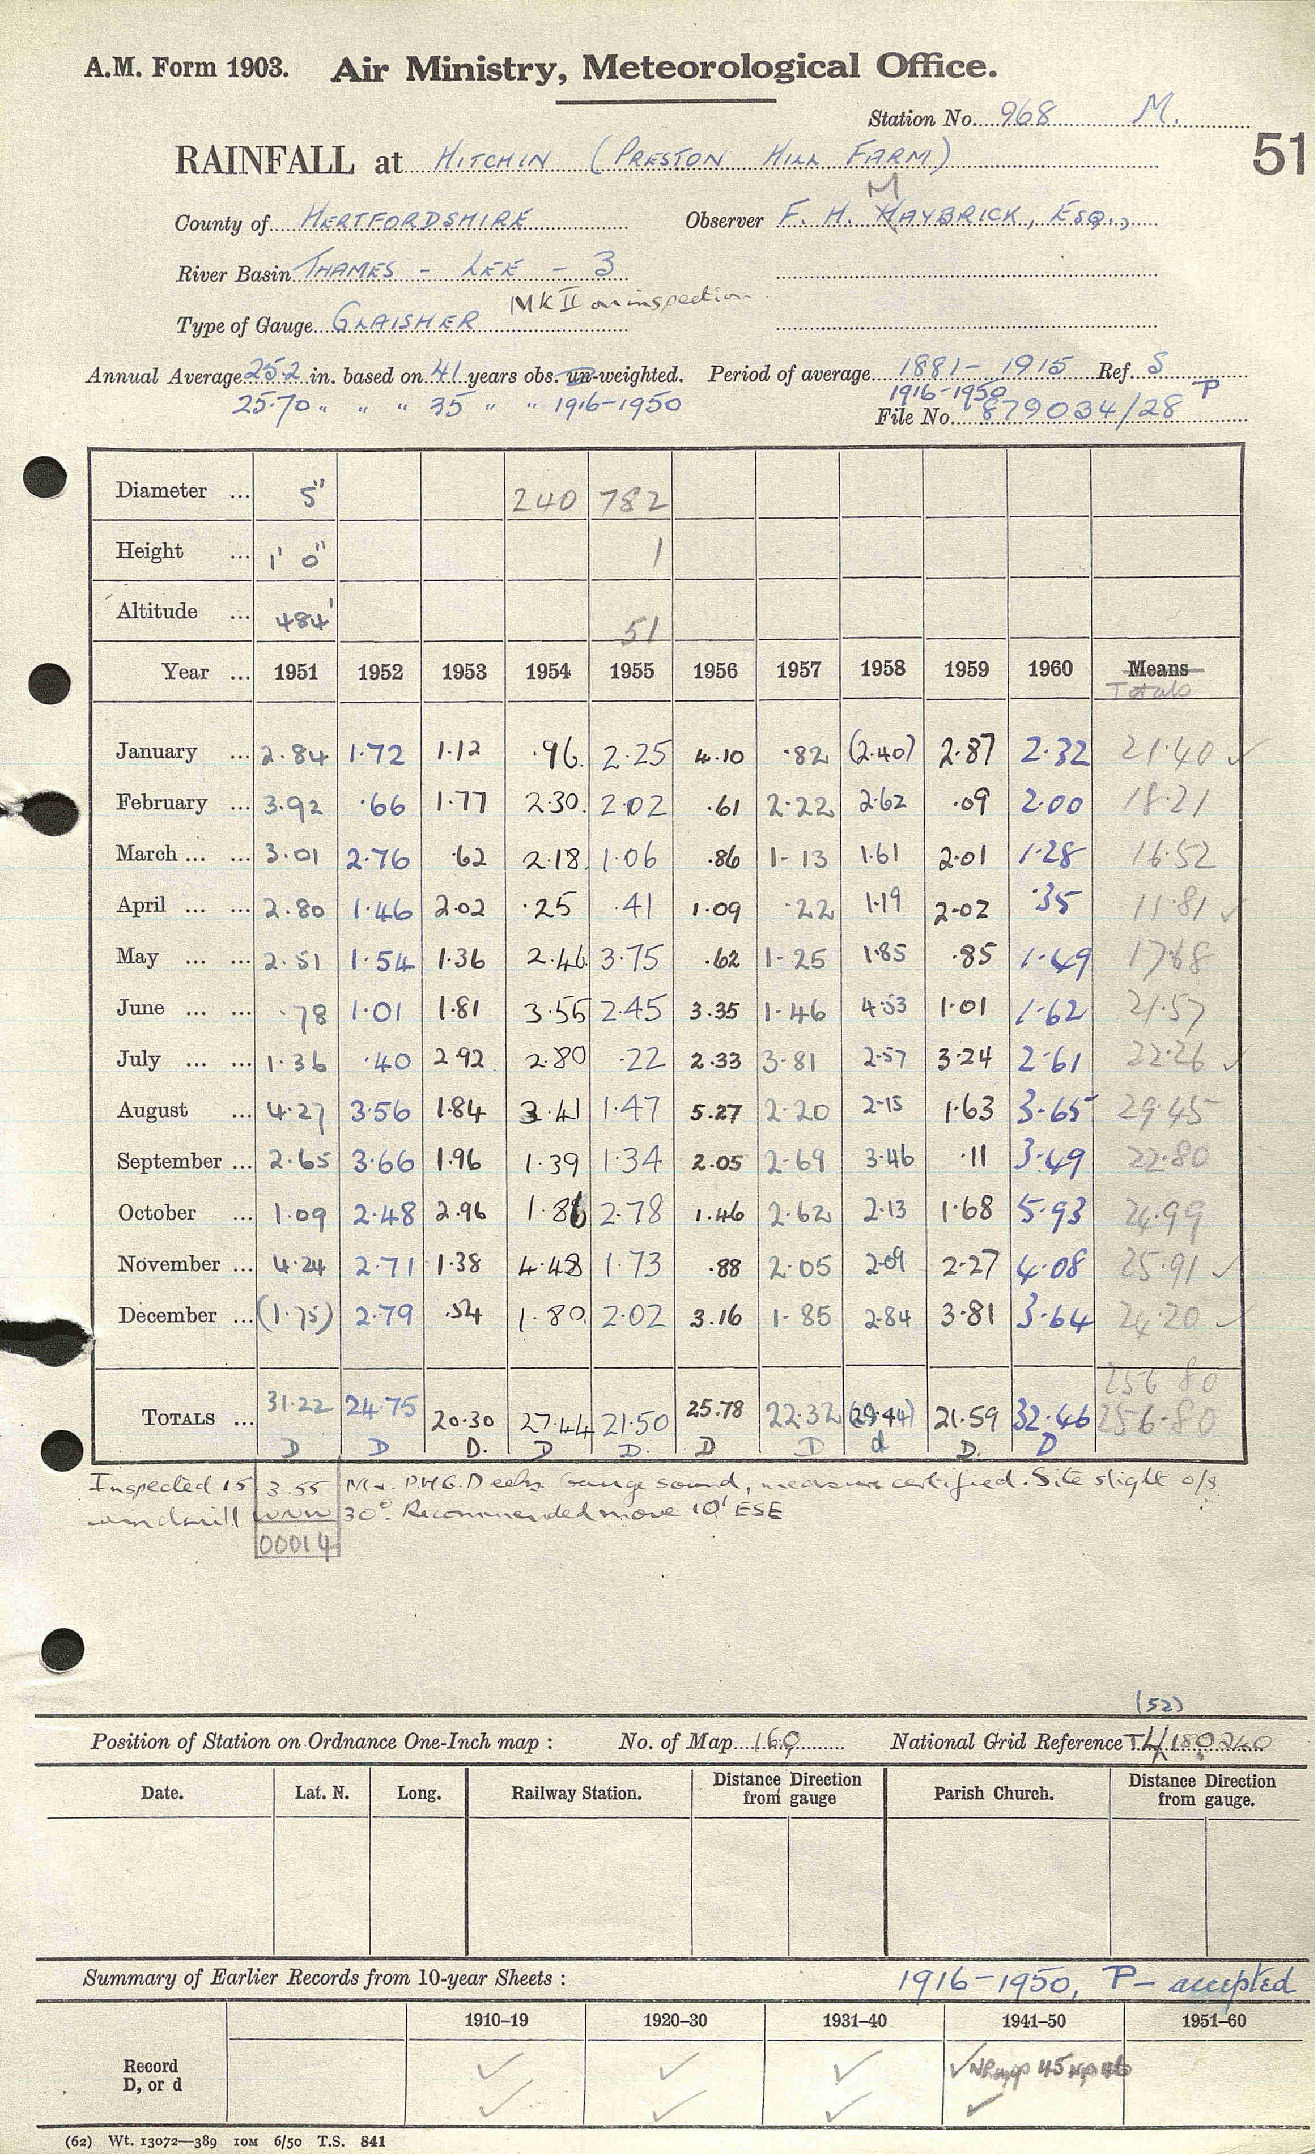 A.M. Form 1903. Air Ministry, Meteorological Office.
Station No. 968 M.
51
RAINFALL at HITCHIN (PRESTON HILL FARM)
M
County of HERTFORDSHIRE Observer F. H. HAYBRICK, ESQ.,
River Basin THAMES - LEE - 3
Type of Gauge GLAISHER MK II on inspection
Annual Average 25.2 in. based on 41 years obs. un-weighted. Period of average 1881-1915 Ref. S
25.70 " " " 35 " " 1916-1950 1916-1950 P
File No. 879034/28
Diameter ... 5" 240 782
Height ... 1' 0" 1
Altitude ... 484' 51
Year ... 1951 1952 1953 1954 1955 1956 1957 1958 1959 1960 Means
Totals
January ... 2.84 1.72 1.12 .96 2.25 4.10 .82 (2.40) 2.87 2.32 21.40 ✓
February ... 3.92 .66 1.77 2.30 2.02 .61 2.22 2.62 .09 2.00 18.21
March ... ... 3.01 2.76 .62 2.18 1.06 .86 1.13 1.61 2.01 1.28 16.52
April ... ... 2.80 1.46 2.02 .25 .41 1.09 .22 1.19 2.02 .35 11.81 ✓
May ... ... 2.51 1.54 1.36 2.46 3.75 .62 1.25 1.85 .85 1.49 17.68
June ... ... .78 1.01 1.81 3.55 2.45 3.35 1.46 4.53 1.01 1.62 21.57
July ... ... 1.36 .40 2.92 2.80 .22 2.33 3.81 2.57 3.24 2.61 22.26 ✓
August ... 4.27 3.56 1.84 3.41 1.47 5.27 2.20 2.15 1.63 3.65 29.45
September ... 2.65 3.66 1.96 1.39 1.34 2.05 2.69 3.46 .11 3.49 22.80
October ... 1.09 2.48 2.96 1.86 2.78 1.46 2.62 2.13 1.68 5.93 24.99
November ... 4.24 2.71 1.38 4.48 1.73 .88 2.05 2.09 2.27 4.08 25.91 ✓
December ... (1.75) 2.79 .54 1.80 2.02 3.16 1.85 2.84 3.81 3.64 24.20 ✓
256.80
TOTALS ... 31.22 24.75 20.30 27.44 21.50 25.78 22.32 (29.44) 21.59 32.46 256.80
D D D. D D. D D d D. D
Inspected 15 3.55 Mr. P.H.G. Gauge sound, measure certified. Site slight o/s
windmill WNW 30°. Recommended move 10' ESE
00014
(52)
Position of Station on Ordnance One-Inch map : No. of Map 160 National Grid Reference TL/180240
Date. Lat. N. Long. Railway Station. Distance Direction from gauge Parish Church. Distance Direction from gauge.
Summary of Earlier Records from 10-year Sheets : 1916-1950, P- accepted
1910–19 1920–30 1931–40 1941–50 1951–60
Record
D, or d
✓ ✓ ✓ ✓ 45 46
✓ ✓ ✓ ✓
(62) Wt. 13072—389 10M 6/50 T.S. 841